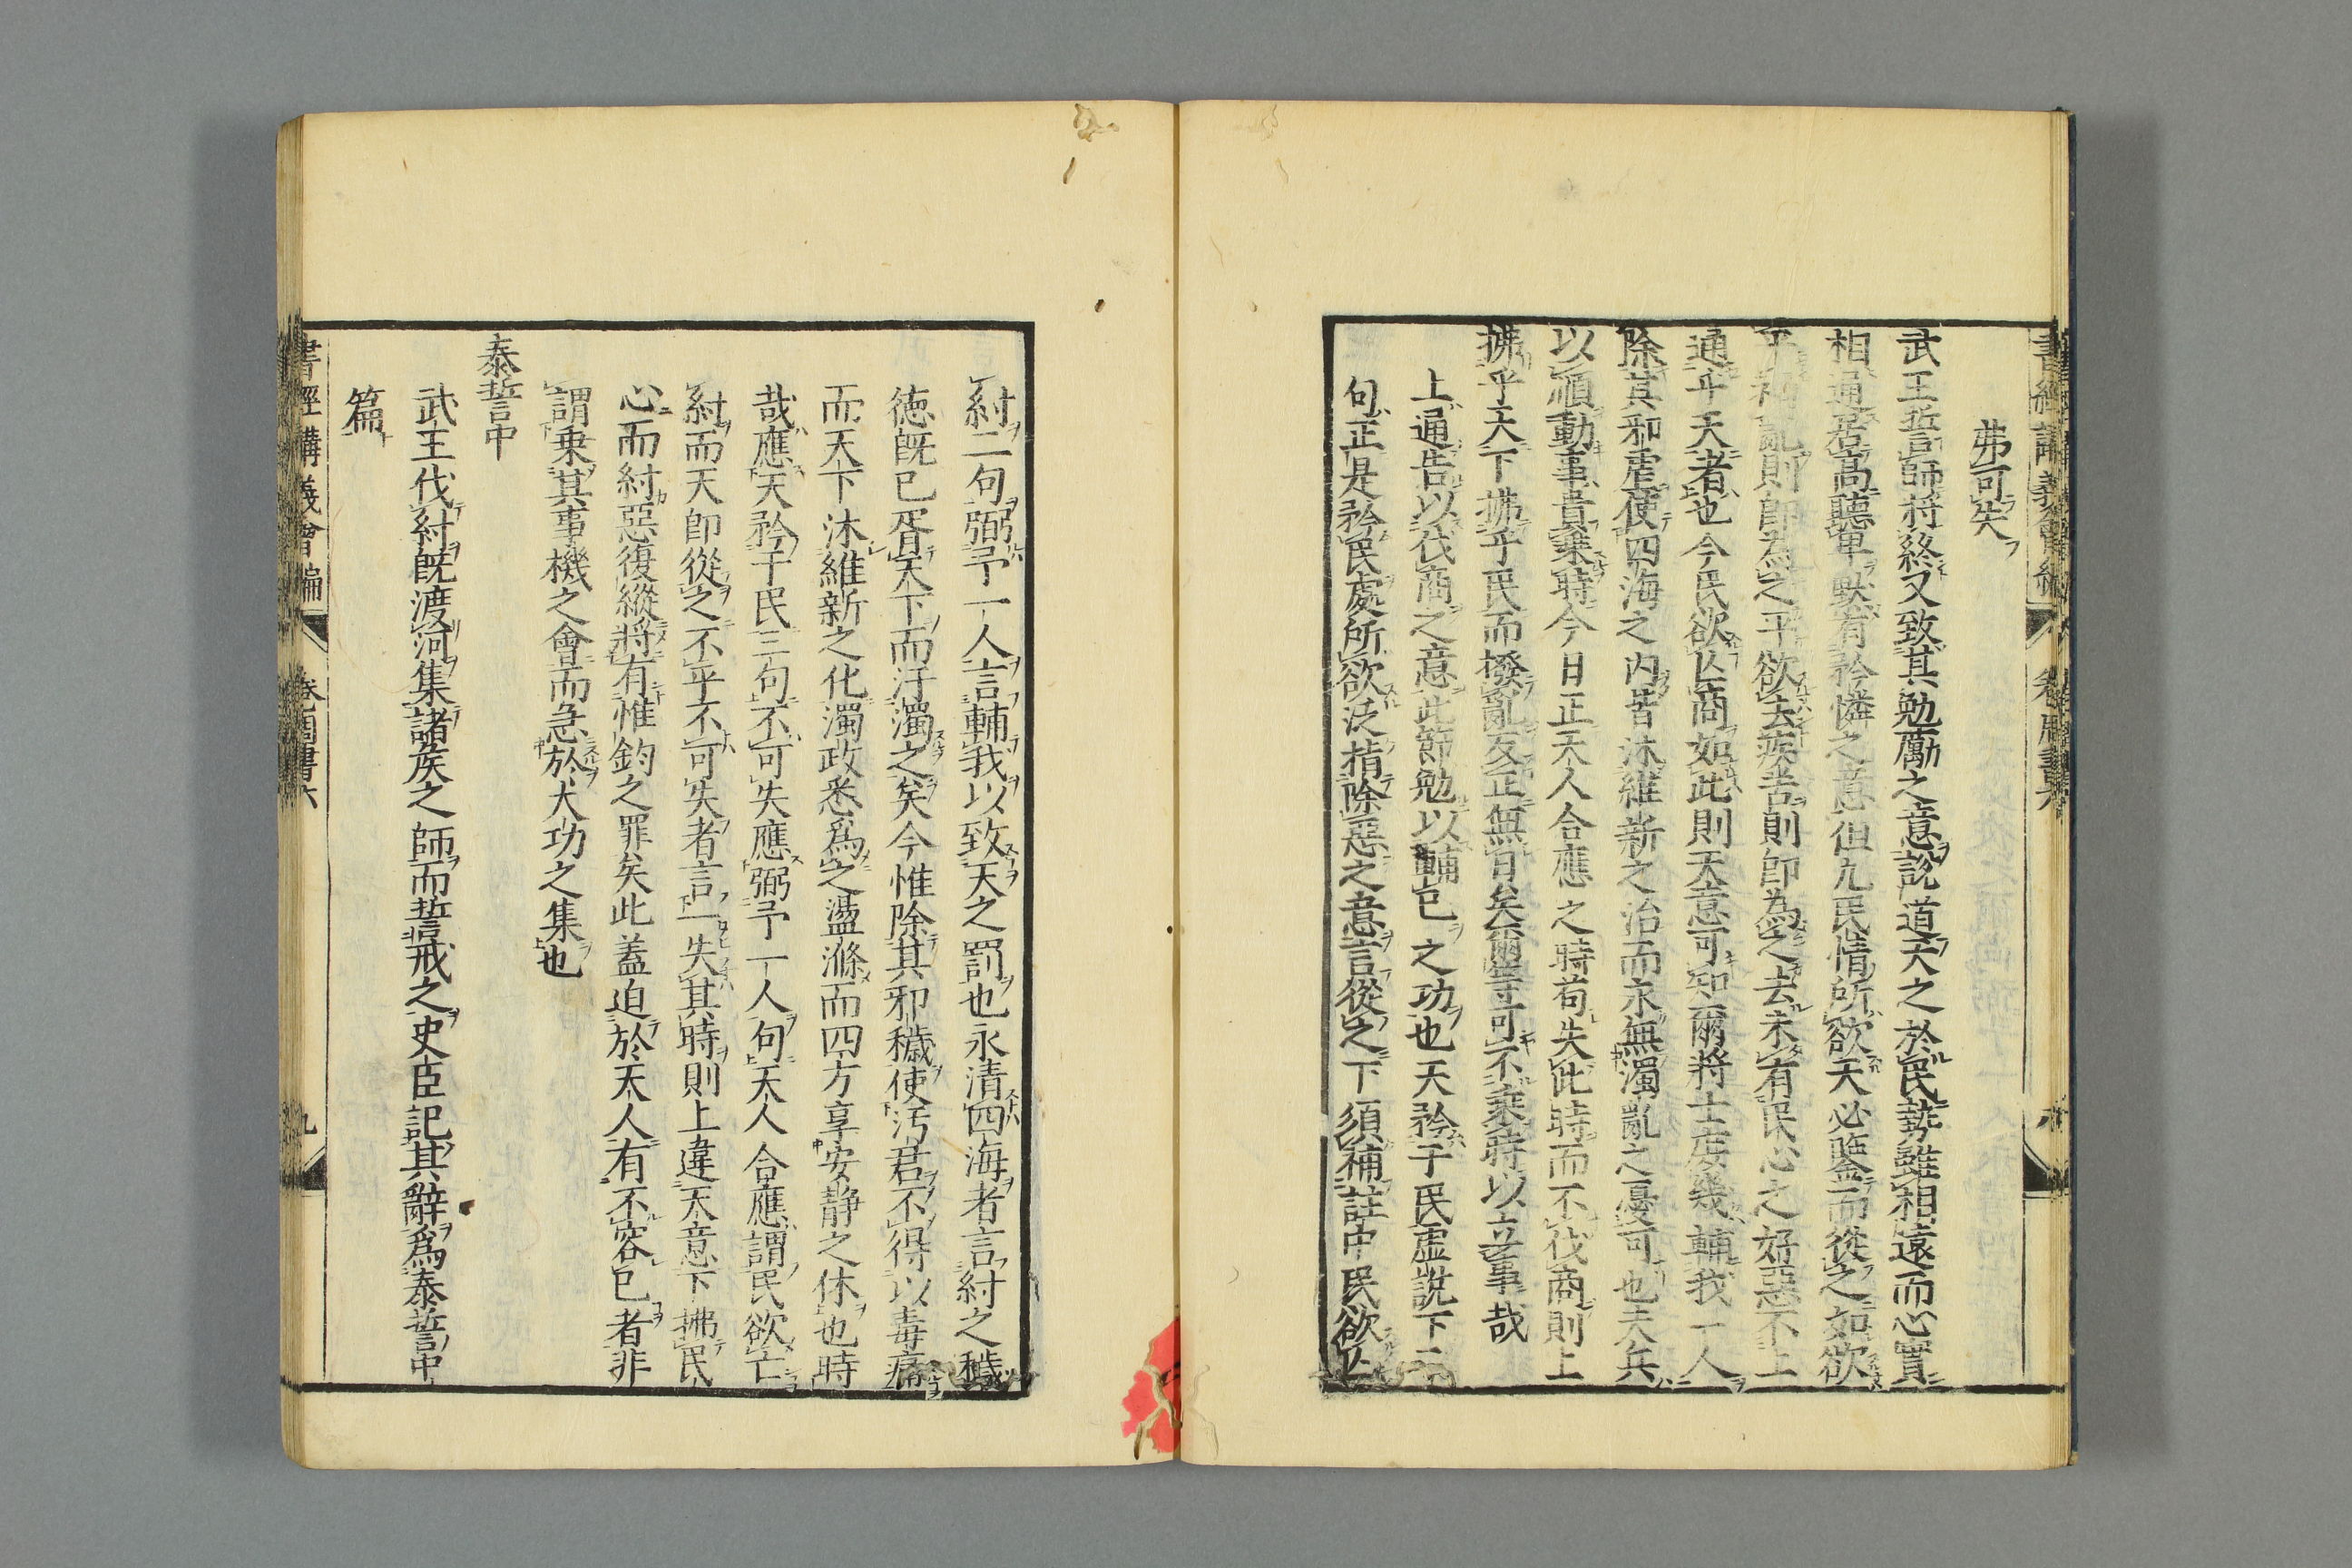 弗可失
武王誓師將終又致其勉勵之意說道天之於民勢雖相遠而心實
相通居高聽卑默有矜憐之意但凡民情所欲天必鑒而從之如欲
平禍亂則即為之平欲去疾苦則即為之去未有民心之好惡不上
通乎天者也今民欲亾商如此則天意可知爾將士庶幾輔我一人
除其邪虐使四海之内皆沐維新之治而永無濁亂之憂可也夫兵
以順動事貴乗時今日正天人合應之時苟失此時而不伐商則上
拂乎天下拂乎民而撥亂反正無日矣爾等可不乗時以立事哉
上通告以伐商之意此節勉以輔已之功也天矜于民虛說下二
句正是矜民處所欲泛指除惡之意言從之下須補註中民欲亾
紂二句弼予一人言輔我以致天之罰也永清四海者言紂之穢
徳既已胥天下而汙濁之矣今惟除其邪穢使污君不得以毒痡
而天下沐維新之化濁政悉爲之盪滌而四方享安静之休也時
哉應天矜于民三句不可失應弼予一人句天人合應謂民欲亡
紂而天即從之不乎不可失者言一失其時則上違天意下拂民
心而紂惡復縱將有惟鈞之罪矣此蓋迫於天人有不容已者非
謂乗其事機之會而急於大功之集也
泰誓中
武王伐紂既渡河集諸侯之師而誓戒之史臣記其辭爲泰誓中
篇
書經講義會編 卷 周書六 九